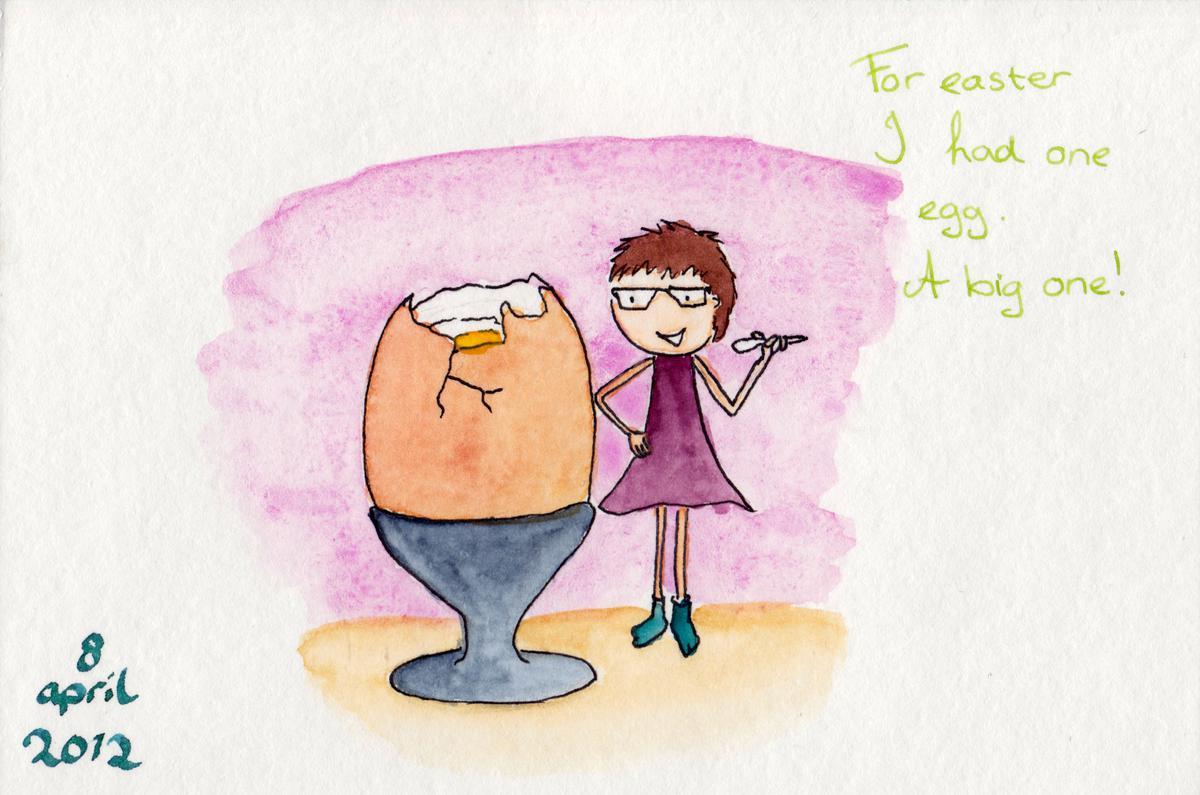 For easter
I had one
egg.
A big one!
8
april
2012